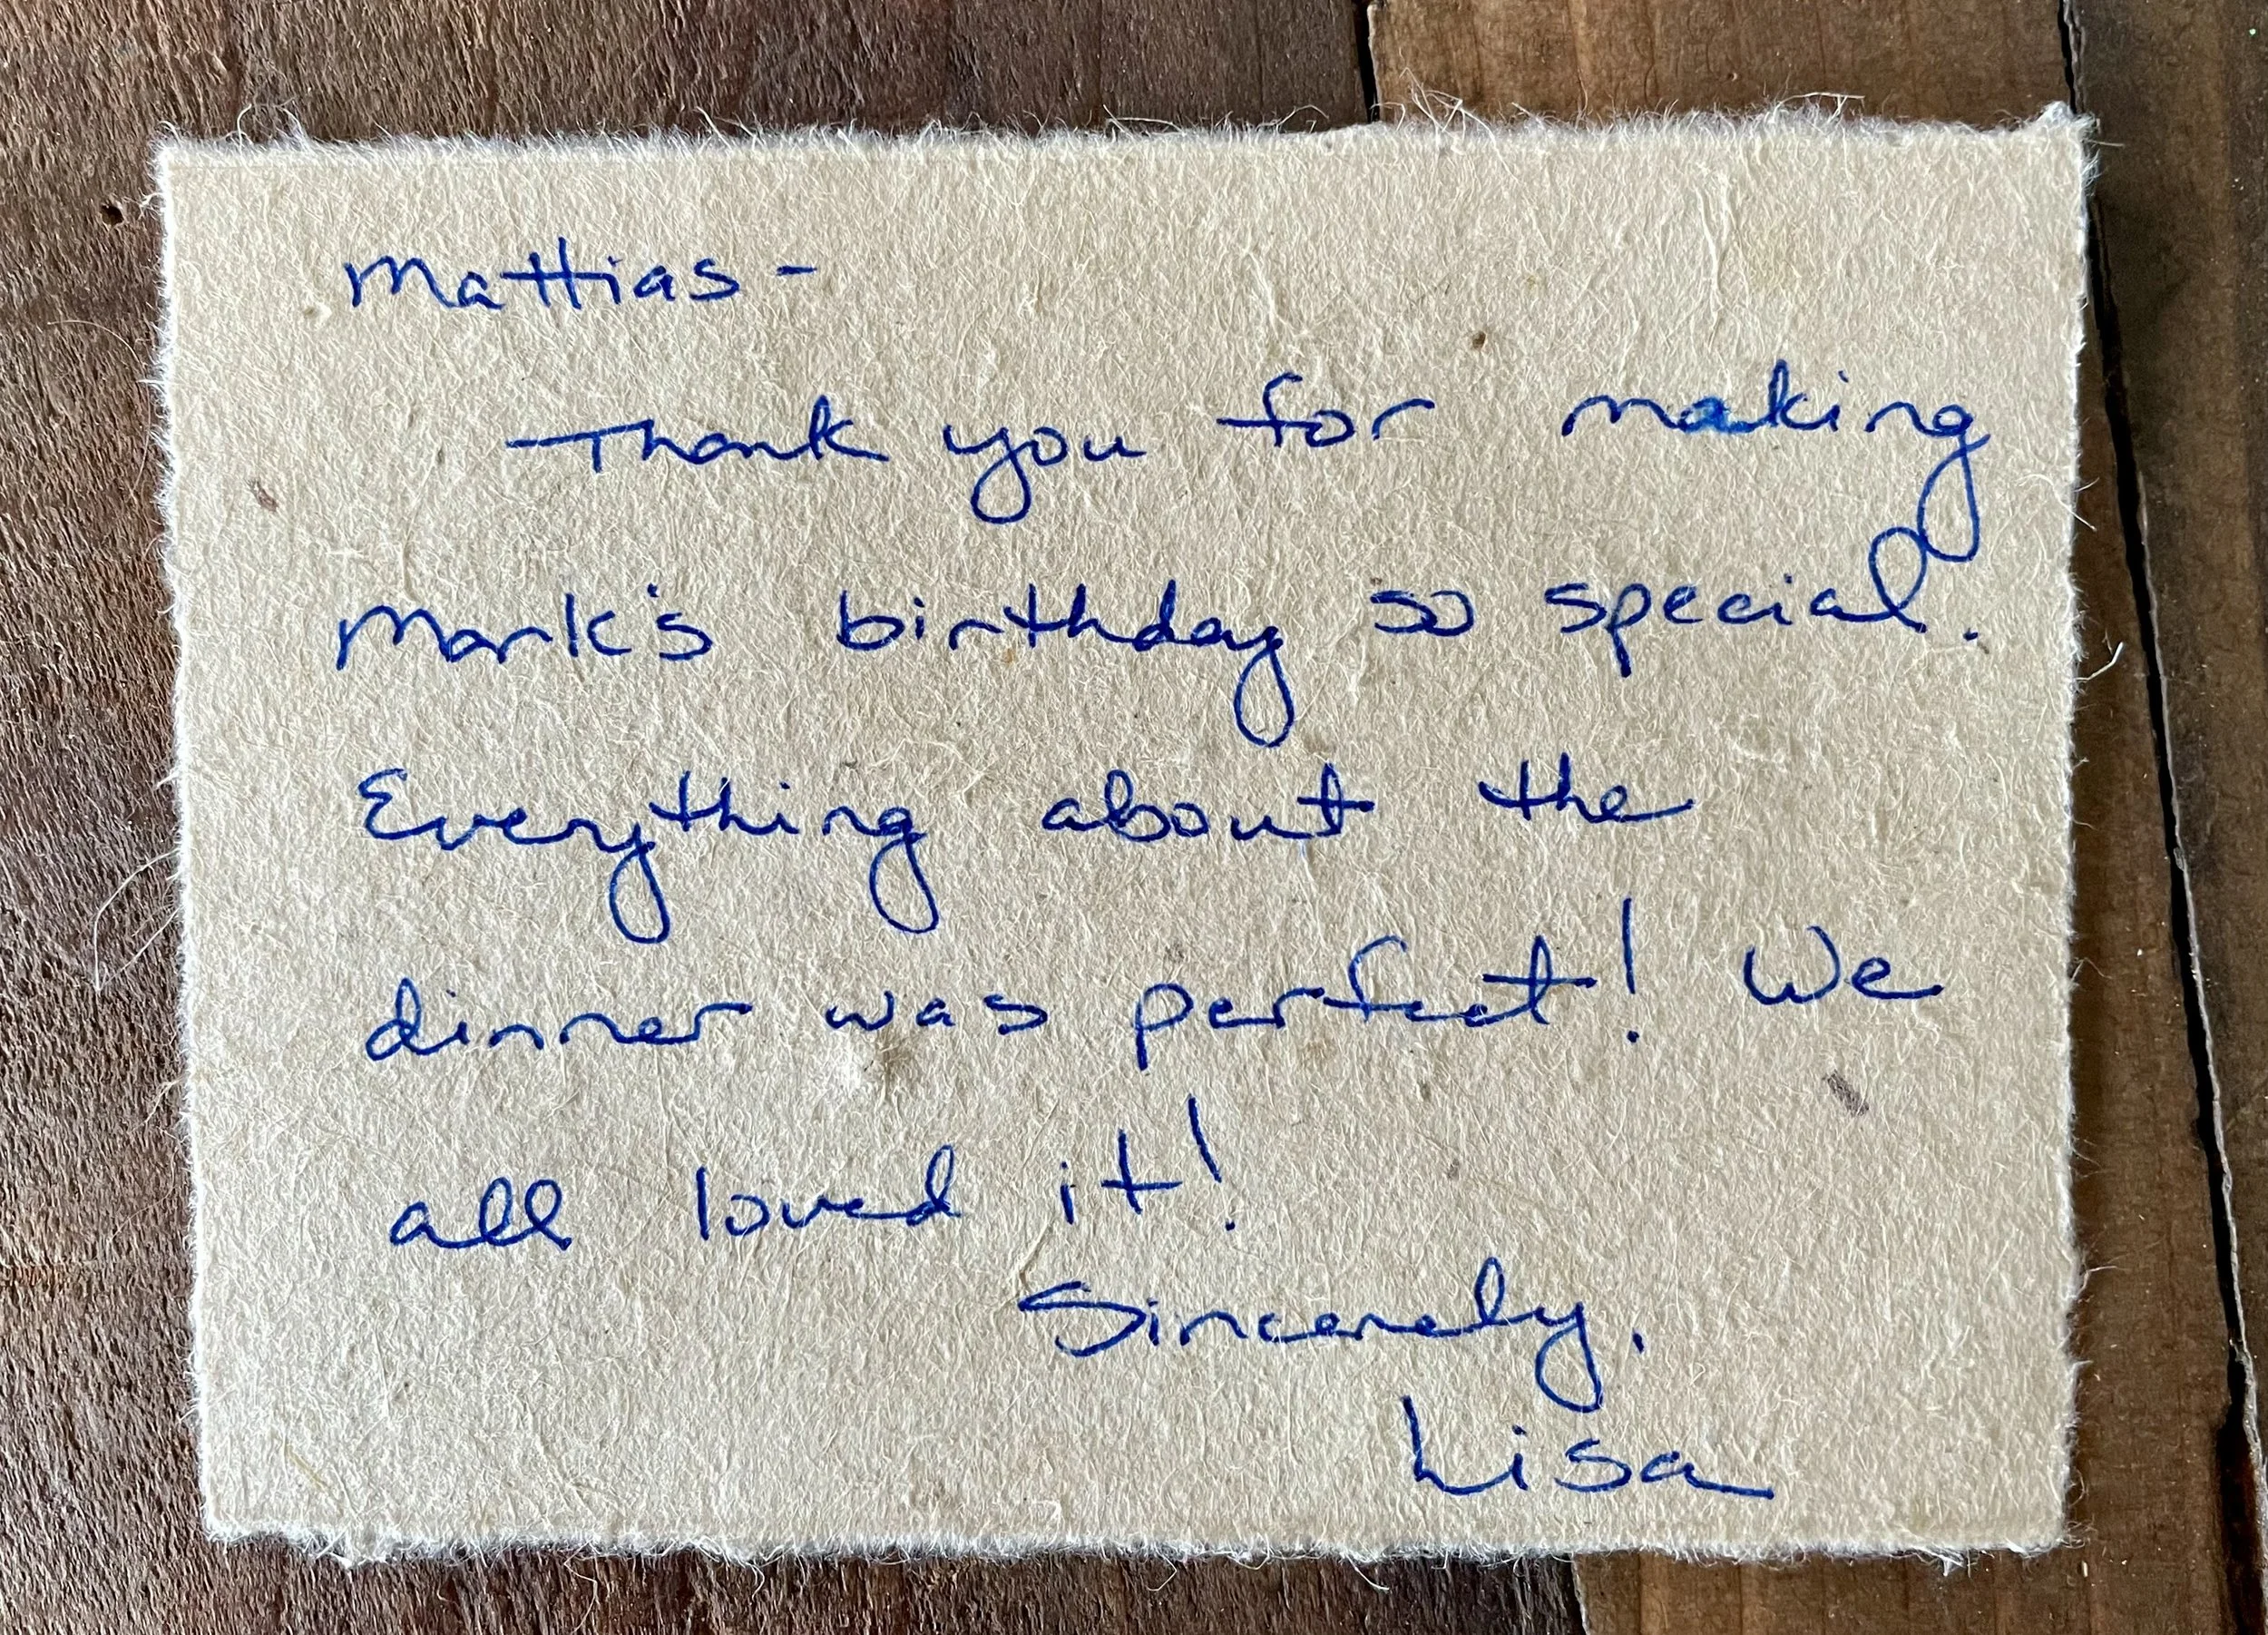 Mattias -
Thank you for making
Mark's birthday so special.
Everything about the
dinner was perfect! We
all loved it!
Sincerely,
Lisa